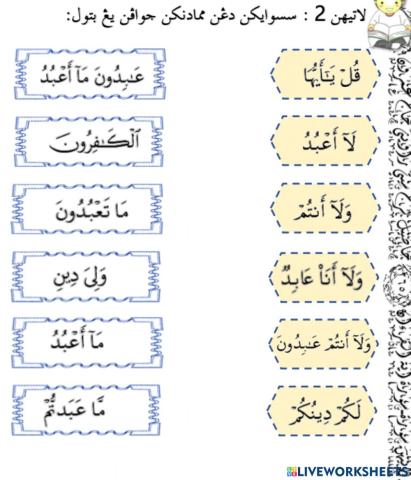 لاتيهن 2 : سسوايكن دڠن ممادنكن جواڤن يڠ بتول:
قُلْ يَـٰٓأَيُّهَا
عَـٰبِدُونَ مَآ أَعْبُدُ
لَآ أَعْبُدُ
ٱلْكَـٰفِرُونَ
وَلَآ أَنتُمْ
مَا تَعْبُدُونَ
وَلَآ أَنَا۠ عَابِدٌ
وَلِىَ دِينِ
وَلَآ أَنتُمْ عَـٰبِدُونَ
مَآ أَعْبُدُ
لَكُمْ دِينُكُمْ
مَّا عَبَدتُّمْ
LIVEWORKSHEETS